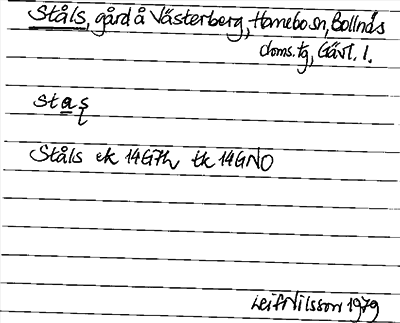 Ståls, gård å Västerberg, Hanebo sn, Bollnäs
doms. tg, Gävl. l.
Ståls ek 14G7h tk 14GNO
Leif Nilsson 1979